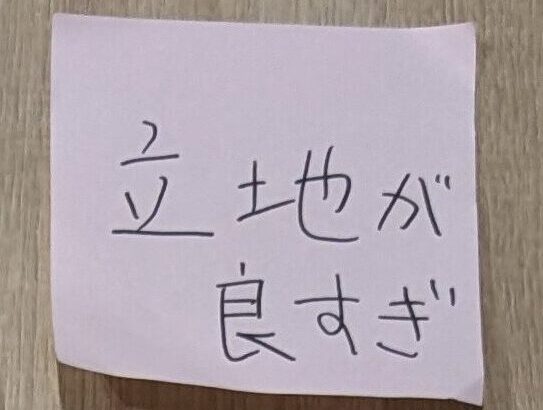 立地が
良すぎ